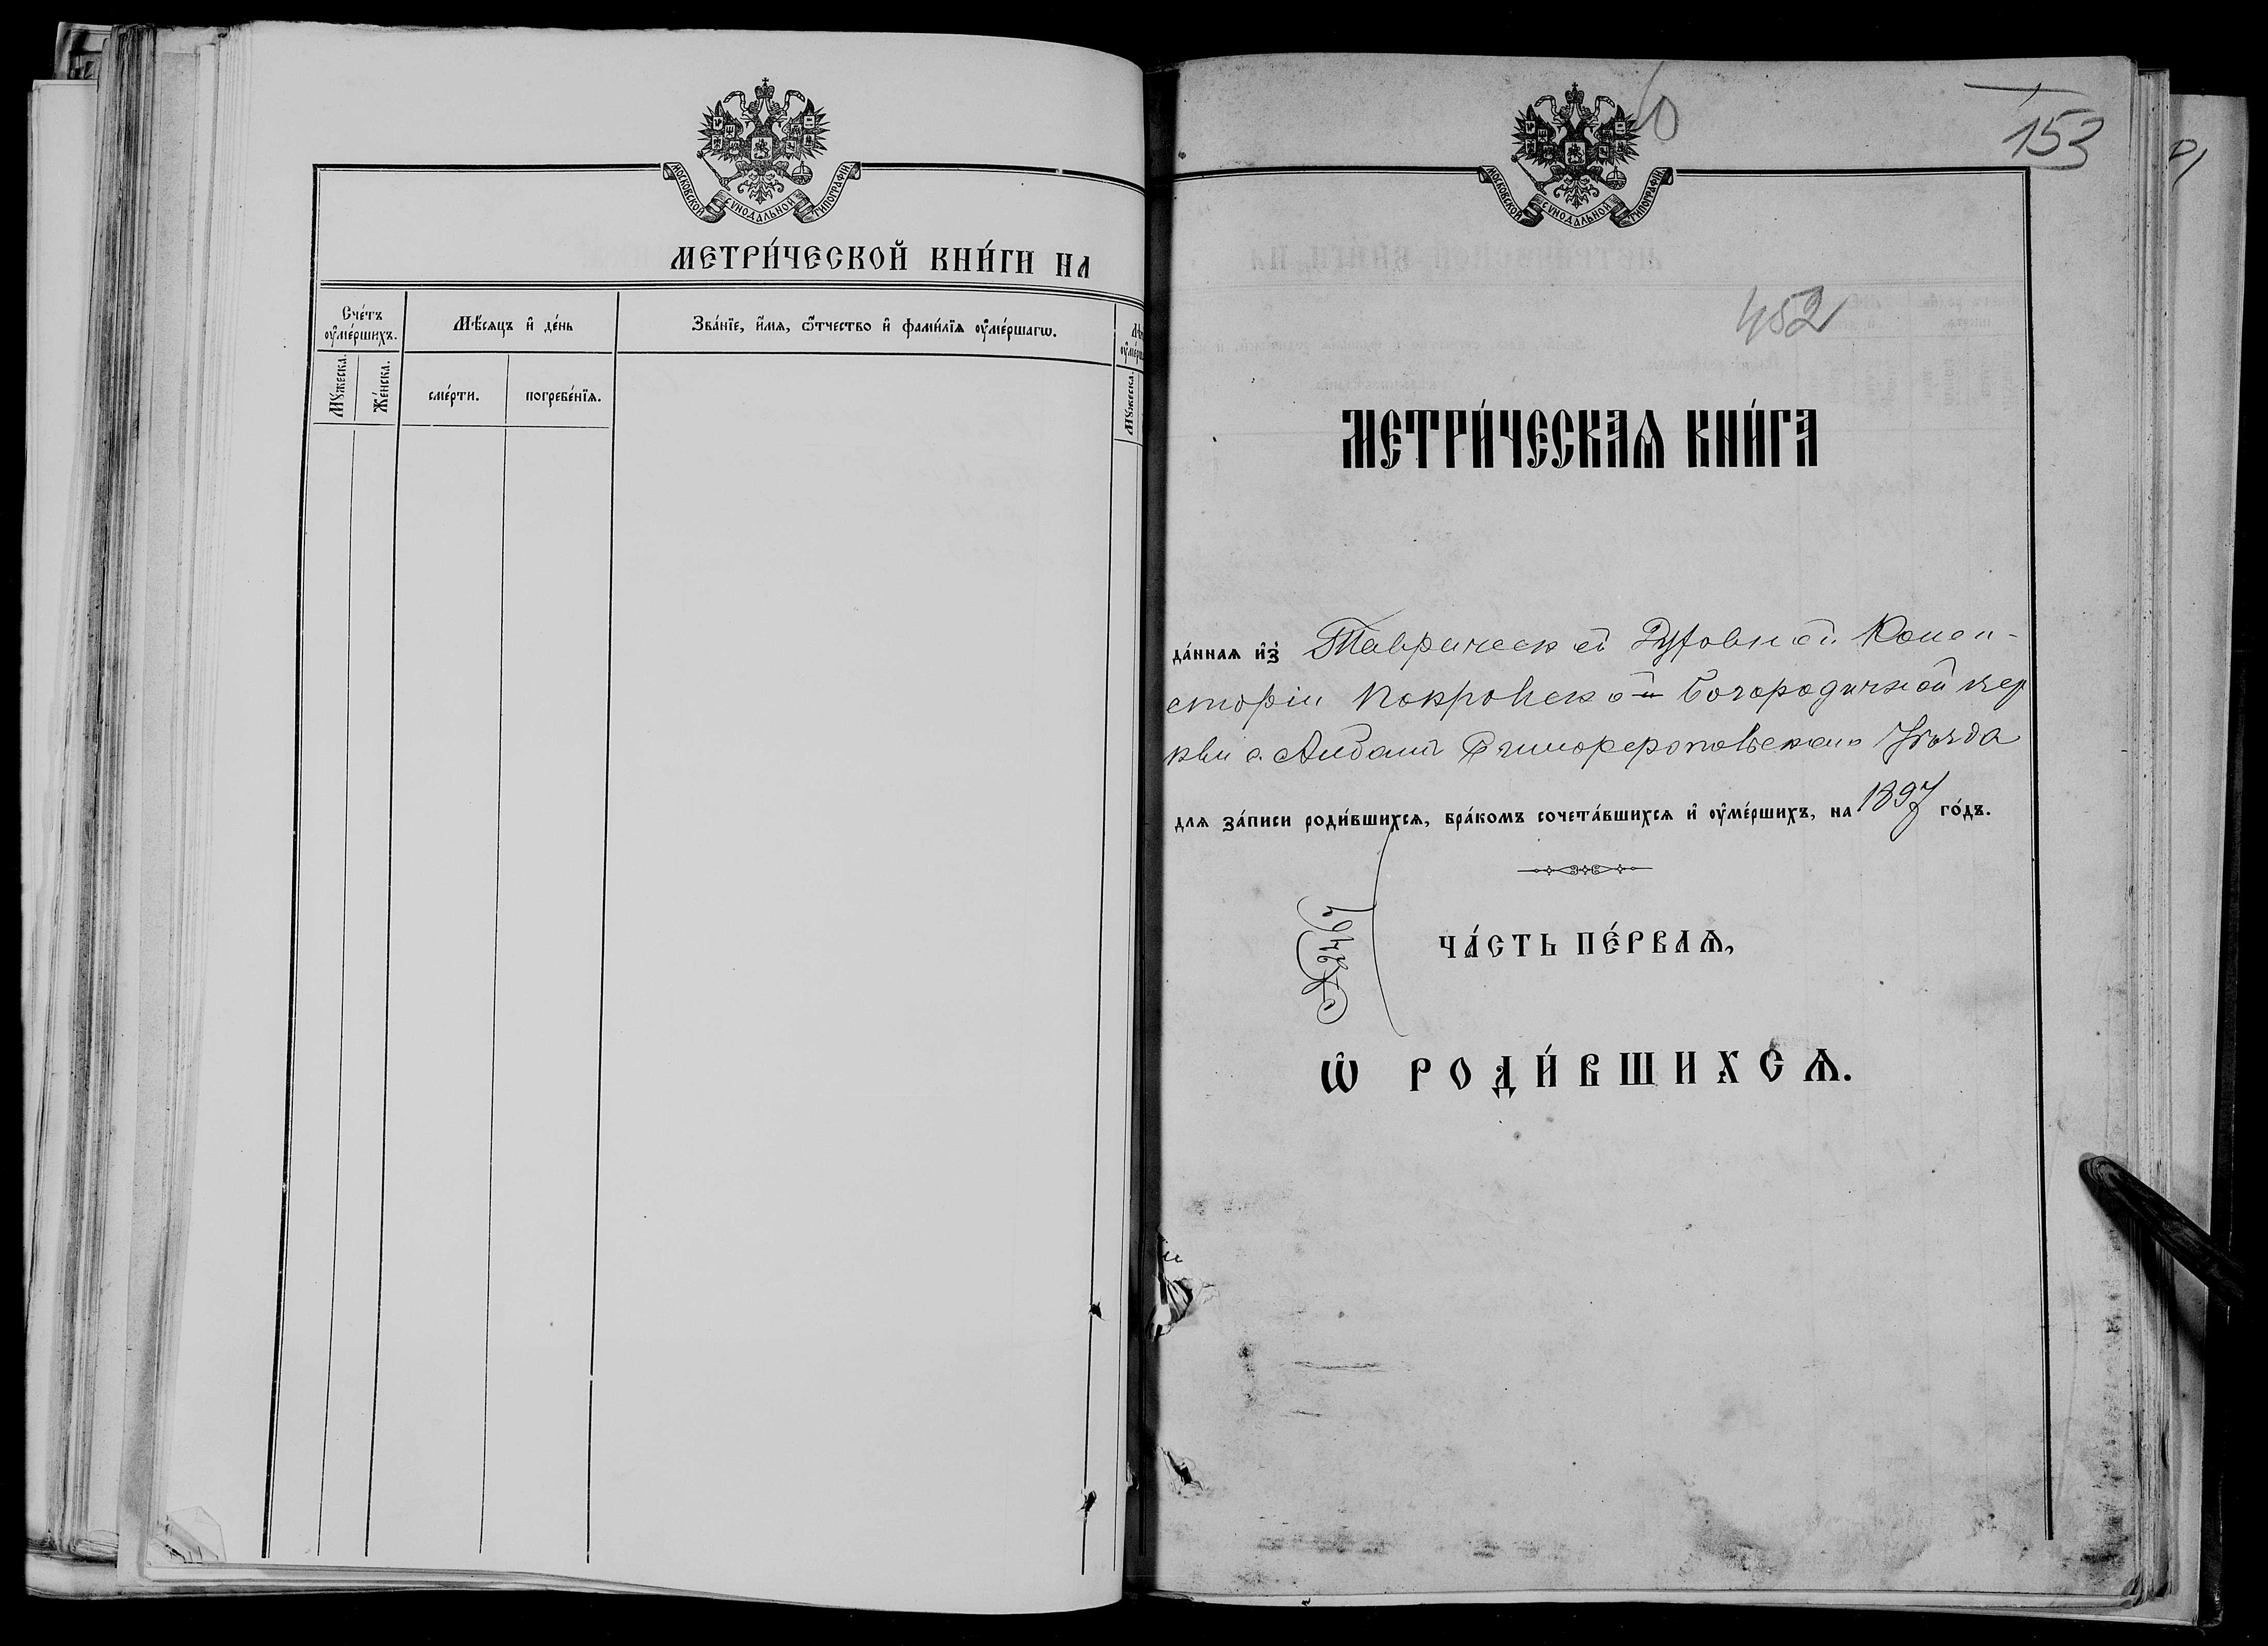 МОСКОВСКОЙ СѴНОДАЛЬНОЙ ТИПОГРАФІИ
МЕТРИ́ЧЕСКОЙ КНИ́ГИ НА
Сче́тъ оу҆ме́ршихъ.
Мѣ́сяцъ и҆ де́нь
Зва́нїе, и҆́мѧ, ѻ҆́тчество и҆ фами́лїѧ оу҆ме́ршагѡ.
Мꙋ́жеска.
Же́нска.
сме́рти.
погребе́нїѧ.
Мꙋ́жеска.
153
МОСКОВСКОЙ СѴНОДАЛЬНОЙ ТИПОГРАФІИ
452
МЕТРИ́ЧЕСКАѦ КНИ́ГА
да́ннаѧ и҆з̾ Таврической Духовной Конси-
сторіи Покровской Богородичной цер
кви с. Анданы Симферопольскаго Уѣзда
длѧ за́писи роди́вшихсѧ, бра́комъ сочета́вшихсѧ и҆ оу҆ме́ршихъ, на 1897 го́дъ.
ЧА́СТЬ ПЕ́РВАѦ,
Ѡ҆ РОДИ́ВШИХСѦ.